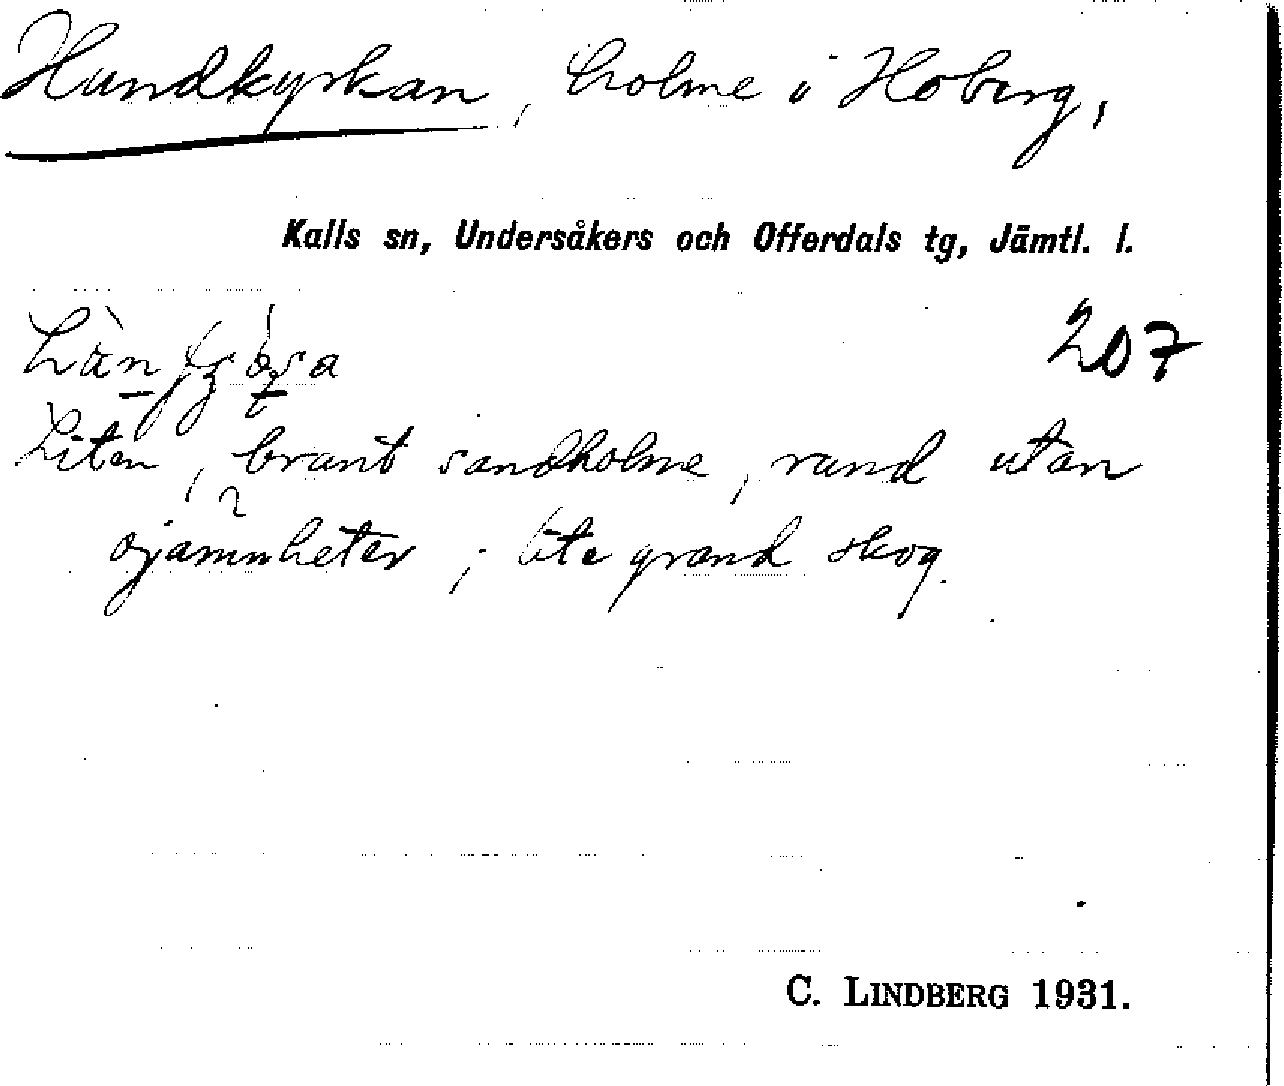 Hundkyrkan, holme i Hoberg,
Kalls sn, Undersåkers och Offerdals tg, Jämtl. l.
207
Liten, brant sandholme, rund utan
ojämnheter; lite grand skog.
C. LINDBERG 1931.